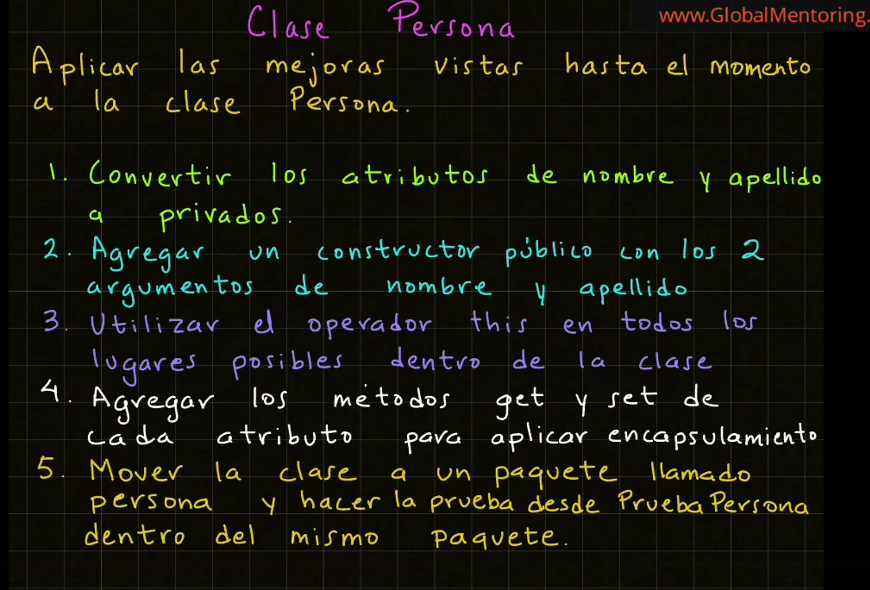 Clase Persona
www.GlobalMentoring.
Aplicar las mejoras vistas hasta el momento
a la clase Persona.
1. Convertir los atributos de nombre y apellido
a privados.
2. Agregar un constructor público con los 2
argumentos de nombre y apellido
3. Utilizar el operador this en todos los
lugares posibles dentro de la clase
4. Agregar los métodos get y set de
cada atributo para aplicar encapsulamiento
5. Mover la clase a un paquete llamado
persona y hacer la prueba desde PruebaPersona
dentro del mismo paquete.